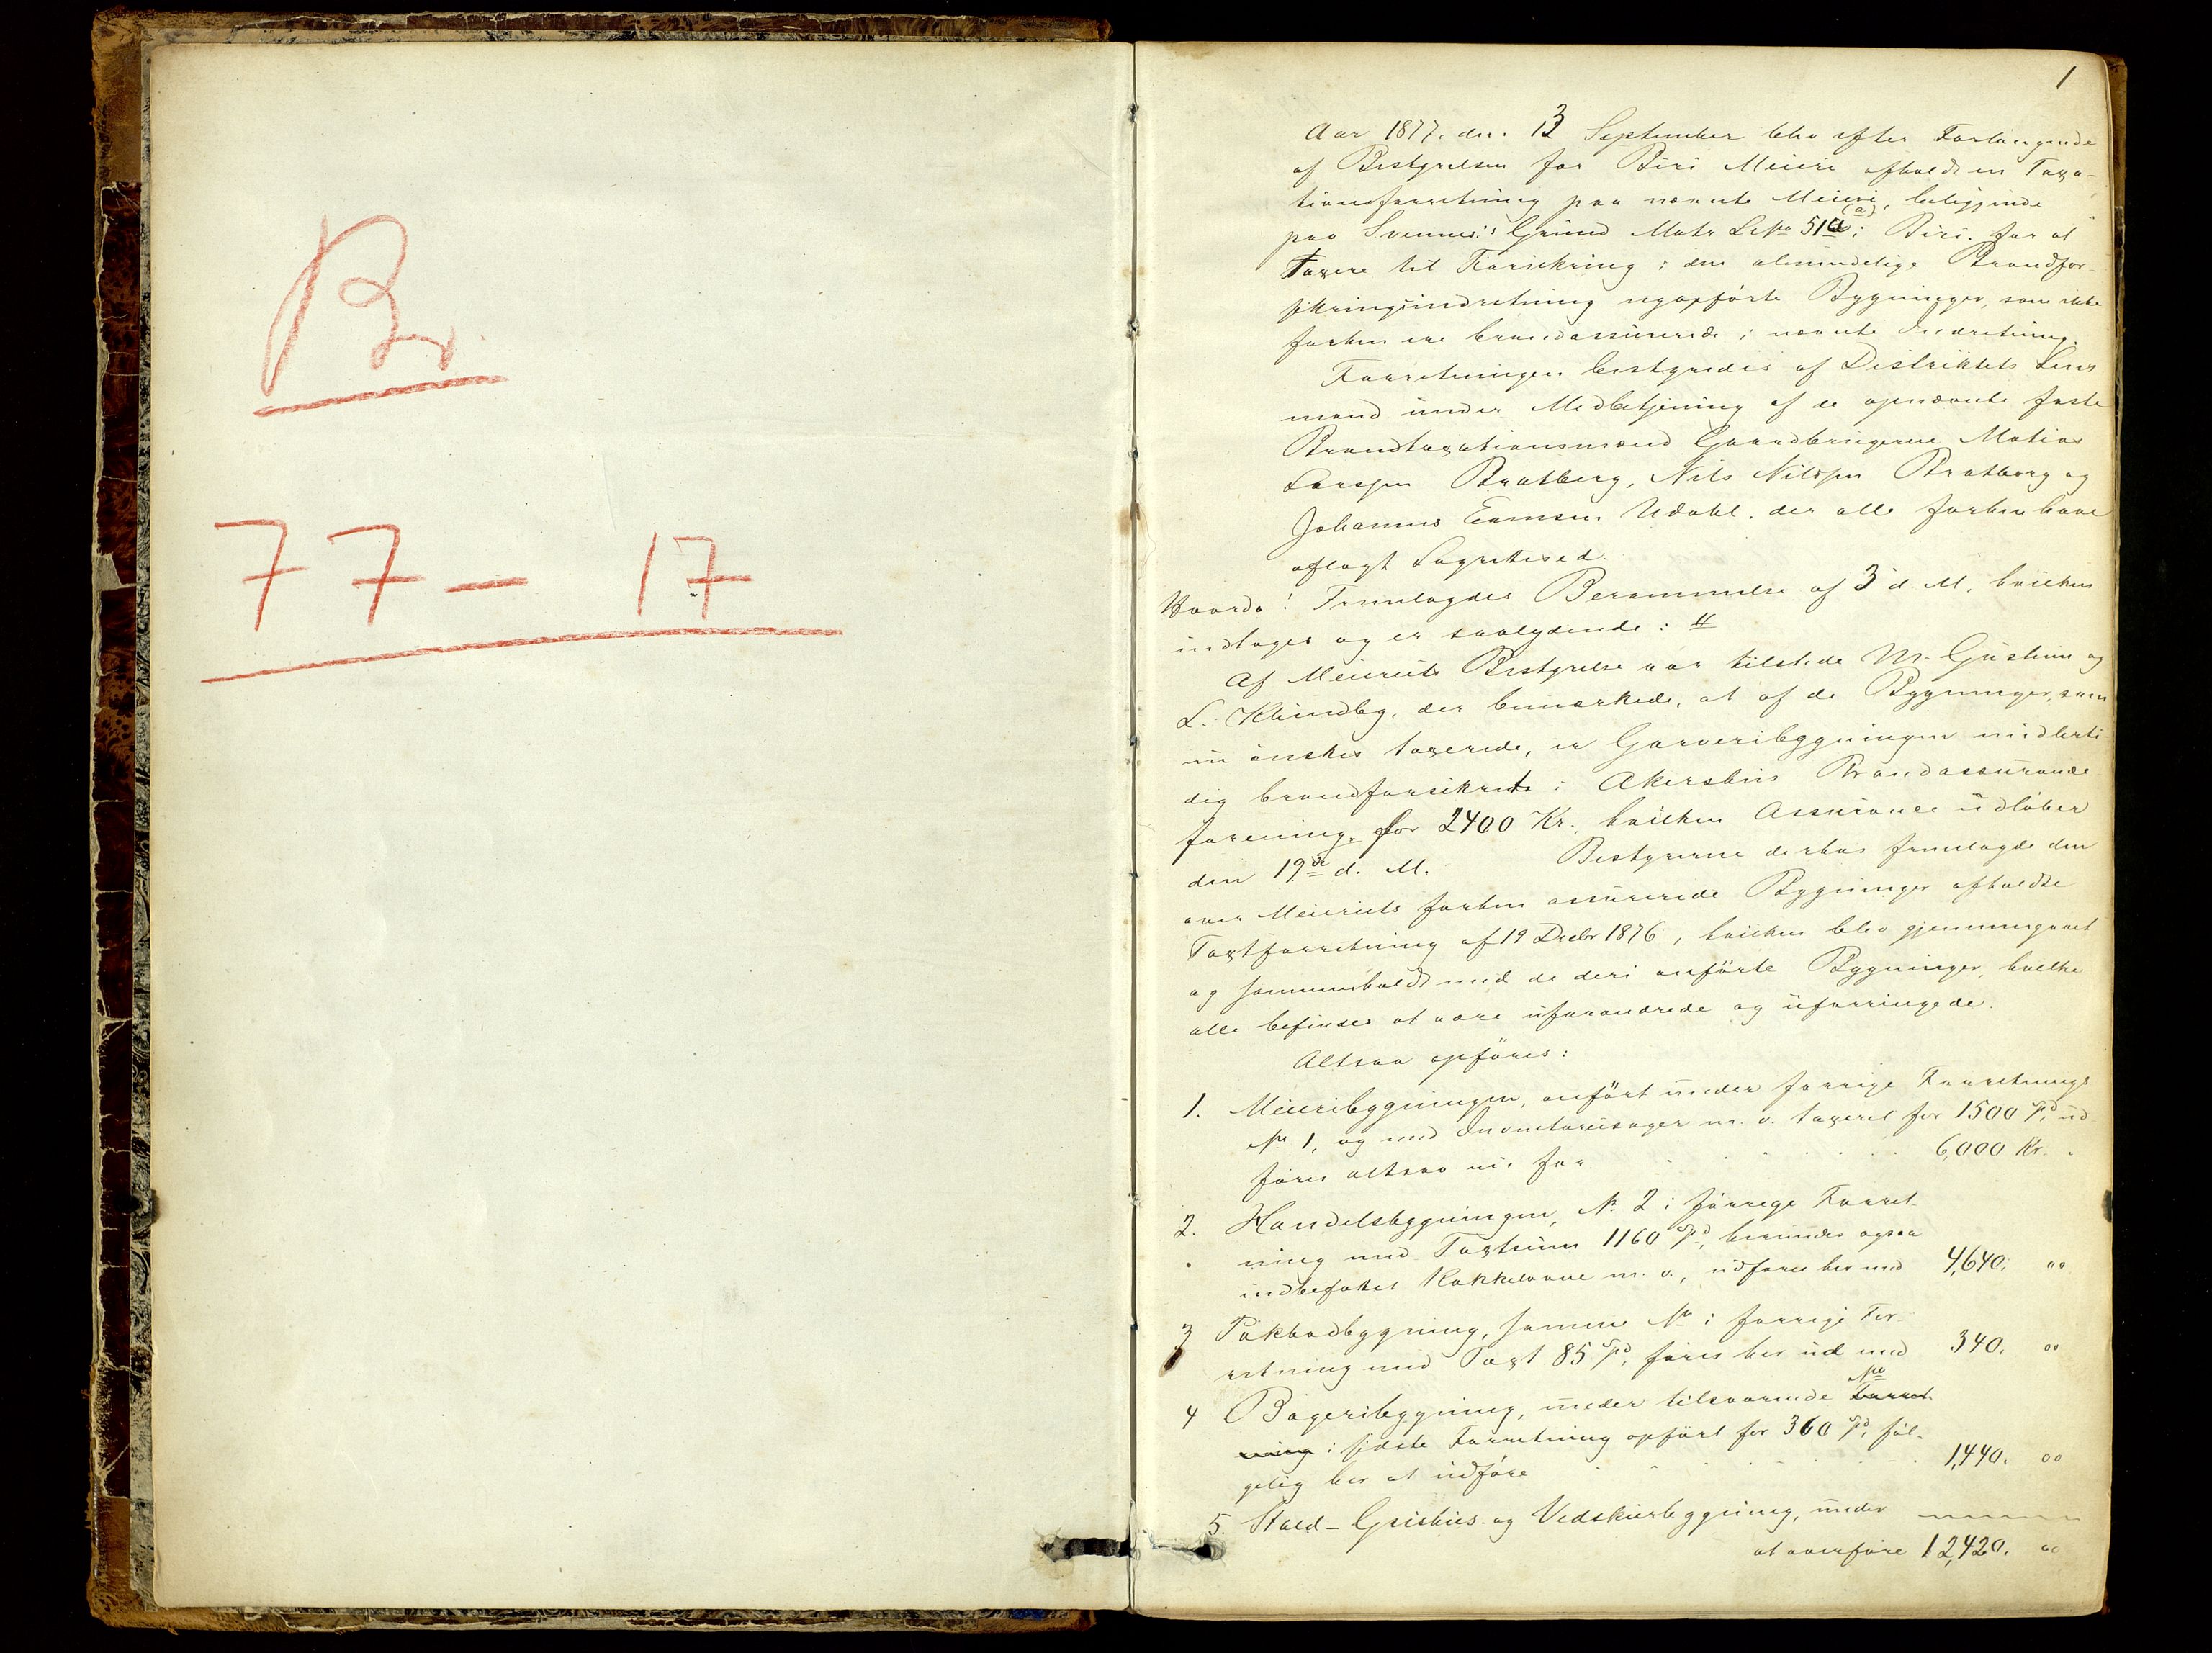 Br.
77 – 17
1
Aar 1877. den 13 September blev efter Forlangende
af Bestyrelsen for Biri Meieri afholdt en Taxa-
tionsforretning paa nævnte Meieri, beliggende
paa Svennes's Grund Matr Løbno 51 (a) i Biri. for at
Taxere til Forsikring i den almindelige Brandfor-
sikringsindretning nyopførte Bygninger, som ikke
forhen ere brandassurerede i nævnte Indretning.
Forretningen bestyredes af Distriktets Lens
mand under Medbetjening af de opnævnte faste
Brandtaxationsmænd Gaardbrugerne Matias
Larssen Bratberg, Nils Nilssen Bratberg og
Johannes Evensen Udahl. der alle forhen have
aflagt Lagrettesed.
Hvorda! Fremlagdes Berammelse af 3 d M. hvilken
indtages og er saalydende: #
Af Meieriets Bestyrelse var tilstede M. Gustum og
L. Klundby, der bemærkede, at af de Bygninger, som
nu ønskes taxerede, er Garveribygningen midlerti
dig brandforsikrets i Akershus Brandassurance
forening. for 2400 Kr. hvilken Assurance udløber
den 19de d. M. Bestyrerne derhos fremlagde den
over Meieriets forhen assurerede Bygninger afholdte
Taxtforretning af 19 Decbr 1876, hvilken blev gjennemgaaet
og sammenholdt med de deri anførte Bygninger, hvilke
alle befindes at være uforandrede og uforringede.
Altsaa opføres:
1. Meieribygningen, anført under forrige Forretnings
No 1, og med Inventariesager m. v. taxeret for 1500 Spd, ud
føres altsaa nu for . . . . . . 6,000 Kr. .
2. Handelsbygningen, No 2 i forrige Forret-
ning med Taxtsum 1160 Spd, herunder ogsaa
indbefattet Kakkelovne m. v., udføres her med 4,640. "
3 Pakbodbygning, samme No i forrige For-
retning med Taxt 85 Spd, føres her ud med 340. "
4 Bageribygning, under tilsvarende Forret No
ning i sidste Forretning opført for 360 Spd, føl-
gelig her at udføre . . . . . 1,440. "
5. Stald- Grishus- og Vedskurbygning, under
at overføre 12,420. "